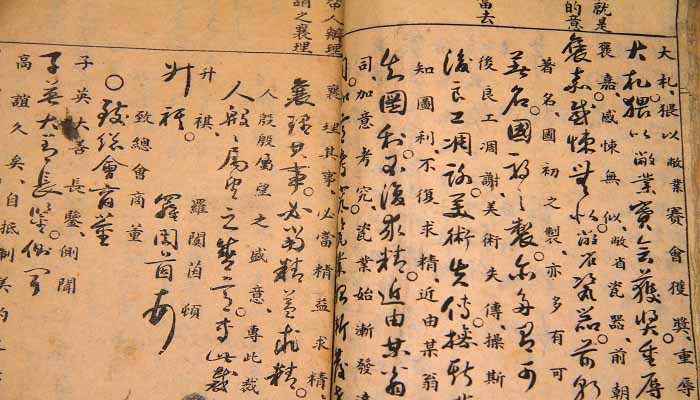 就是
的意
當去
大札猥以敝業賽會獲奬重辱
大札猥以敝業賽會獲奬重辱
褒嘉感悚無似敝省瓷器前朝
褒嘉感悚無似敝省瓷器前朝
著名國初之製亦多有可
著名國初之製亦多有可
後良工凋謝美術失傳操斯
後良工凋謝美術失傳操斯
知圖利不復求精近由某翁
知圖利不復求精近由某翁
司加意考究瓷業始漸發達
人辦理
謂之襄理
襄理其事必當精益求精
襄理其事必當精益求精
人殷殷屬望之盛意專此裁
人殷殷屬望之盛意專此裁
升祺 羅闓茵頓
升祺 羅闓茵頓
致總會商董
致總會商董
子英大善長鑒側聞
子英大善長鑒側聞
高誼久矣自抵制美約